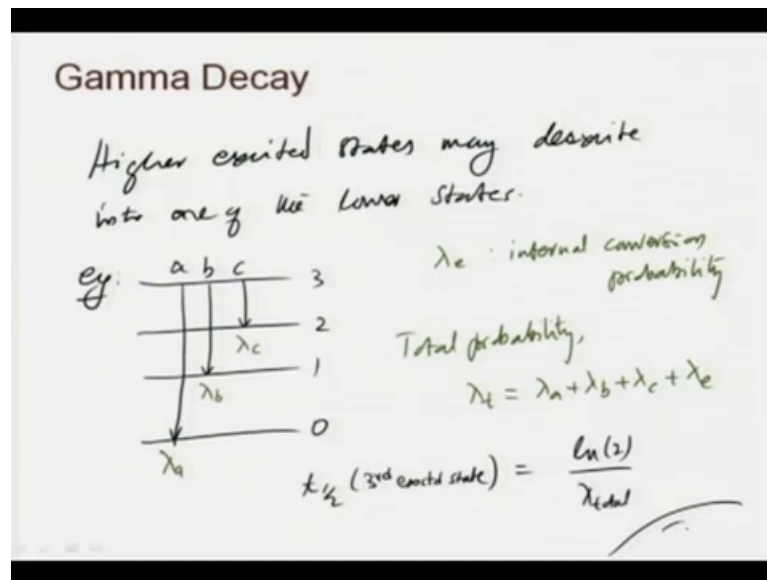 Gamma Decay
Higher excited states may desxite
into one of the lower states.
eg: a b c 3
2
λc
1
λb
0
λa
λe : internal conversion
probability
Total probability,
λt = λa + λb + λc + λe
t1/2 (3rd excited state) = ln(2) / λtotal